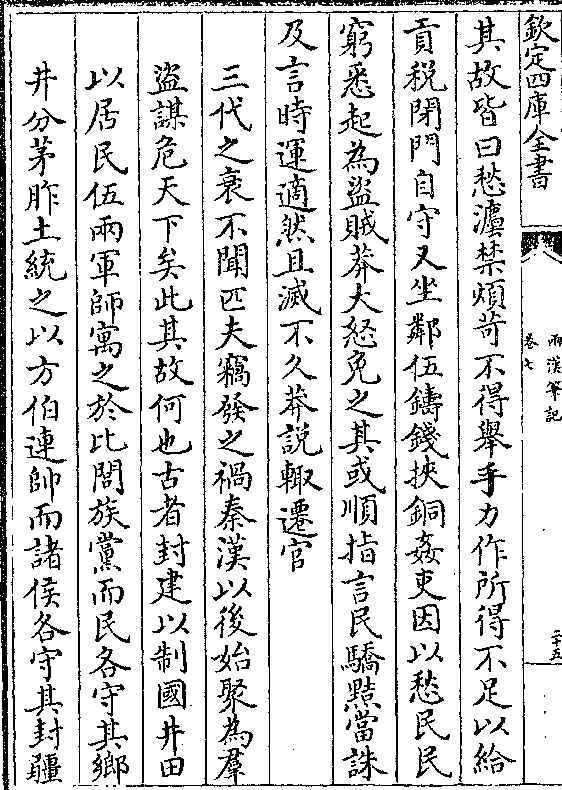 欽定四庫全書
兩漢筆記
卷七
二十五
其故皆曰愁灋禁煩苛不得舉手力作所得不足以給
貢税閉門自守又坐鄰伍鑄錢挾銅姦吏因以愁民民
窮悉起為盜賊莽大怒免之其或順指言民驕黠當誅
及言時運適然且滅不久莽説輙遷官
三代之衰不聞匹夫竊發之禍秦漢以後始聚為羣
盜謀危天下矣此其故何也古者封建以制國井田
以居民伍兩軍師寓之於比閭族黨而民各守其鄉
井分茅胙土統之以方伯連帥而諸侯各守其封疆